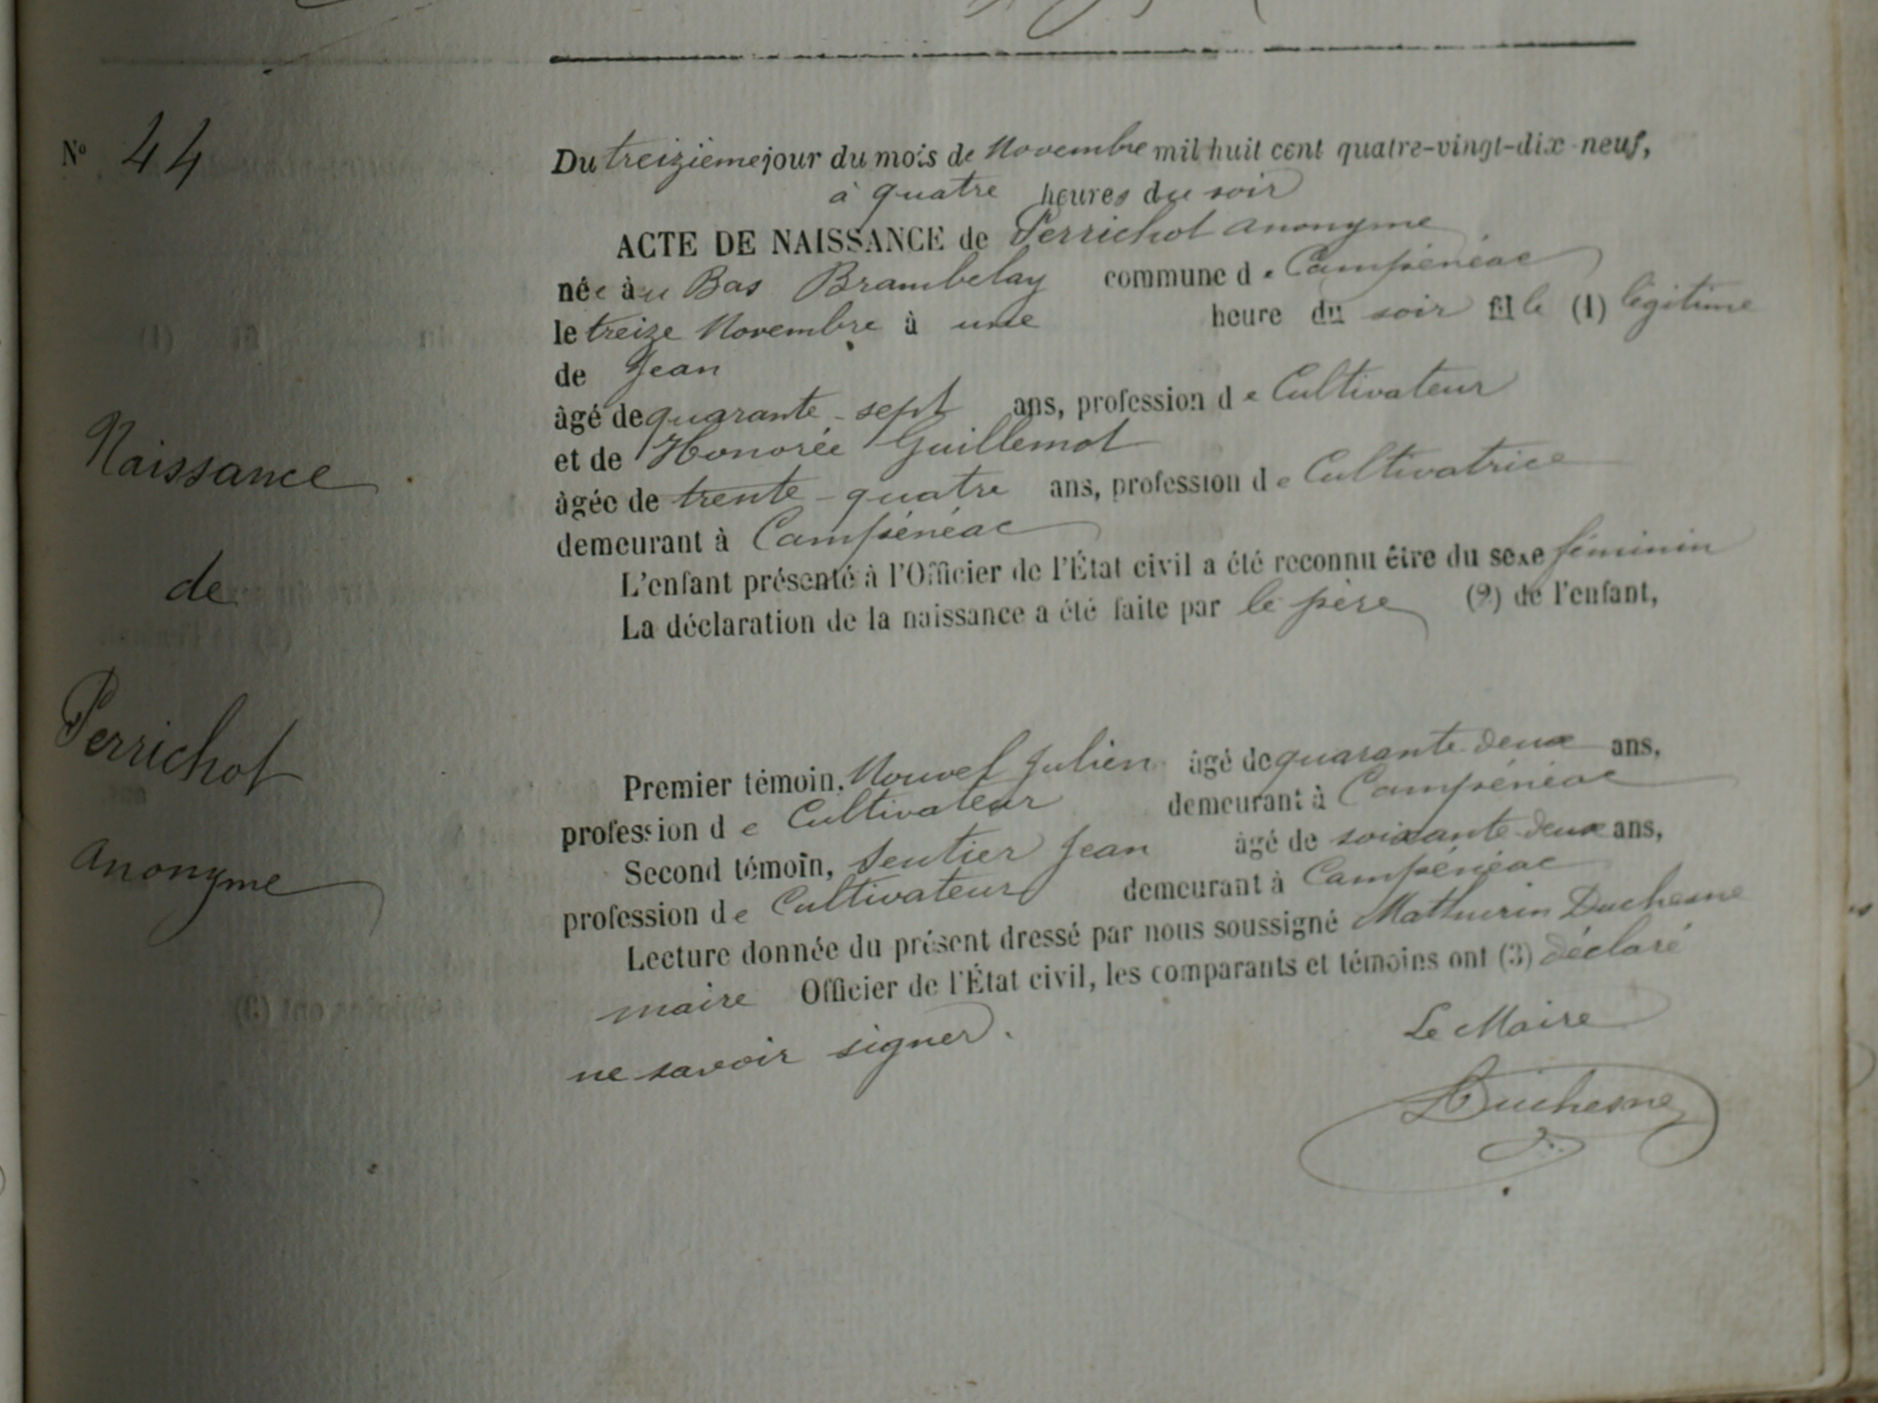 N° 44
Naissance
de
Perrichot
anonyme
Du treizième jour du mois de Novembre mil huit cent quatre-vingt-dix-neuf,
à quatre heures du soir
ACTE DE NAISSANCE de Perrichot anonyme
née au Bas Brambelay commune de Campénéac
le treize Novembre à une heure du soir fille (1) légitime
de Jean
âgé de quarante-sept ans, profession de Cultivateur
et de Honorée Guillemot
âgée de trente-quatre ans, profession de Cultivatrice
demeurant à Campénéac
L'enfant présenté à l'Officier de l'État civil a été reconnu être du sexe féminin
La déclaration de la naissance a été faite par le père (2) de l'enfant,
Premier témoin, Nouvel Julien âgé de quarante deux ans,
profession de Cultivateur demeurant à Campénéac
Second témoin, Sentier Jean âgé de soixante deux ans,
profession de Cultivateur demeurant à Campénéac
Lecture donnée du présent dressé par nous soussigné Mathurin Duchesne
maire Officier de l'État civil, les comparants et témoins ont (3) déclaré
ne savoir signer.
Le Maire
Duchesne